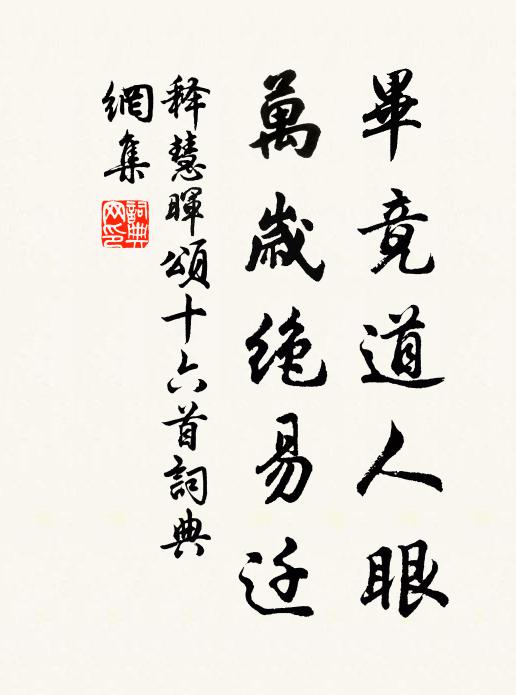 畢竟道人眼
萬歲絶易迁
释慧暉頌十六首詞典
網集
詞典
网印